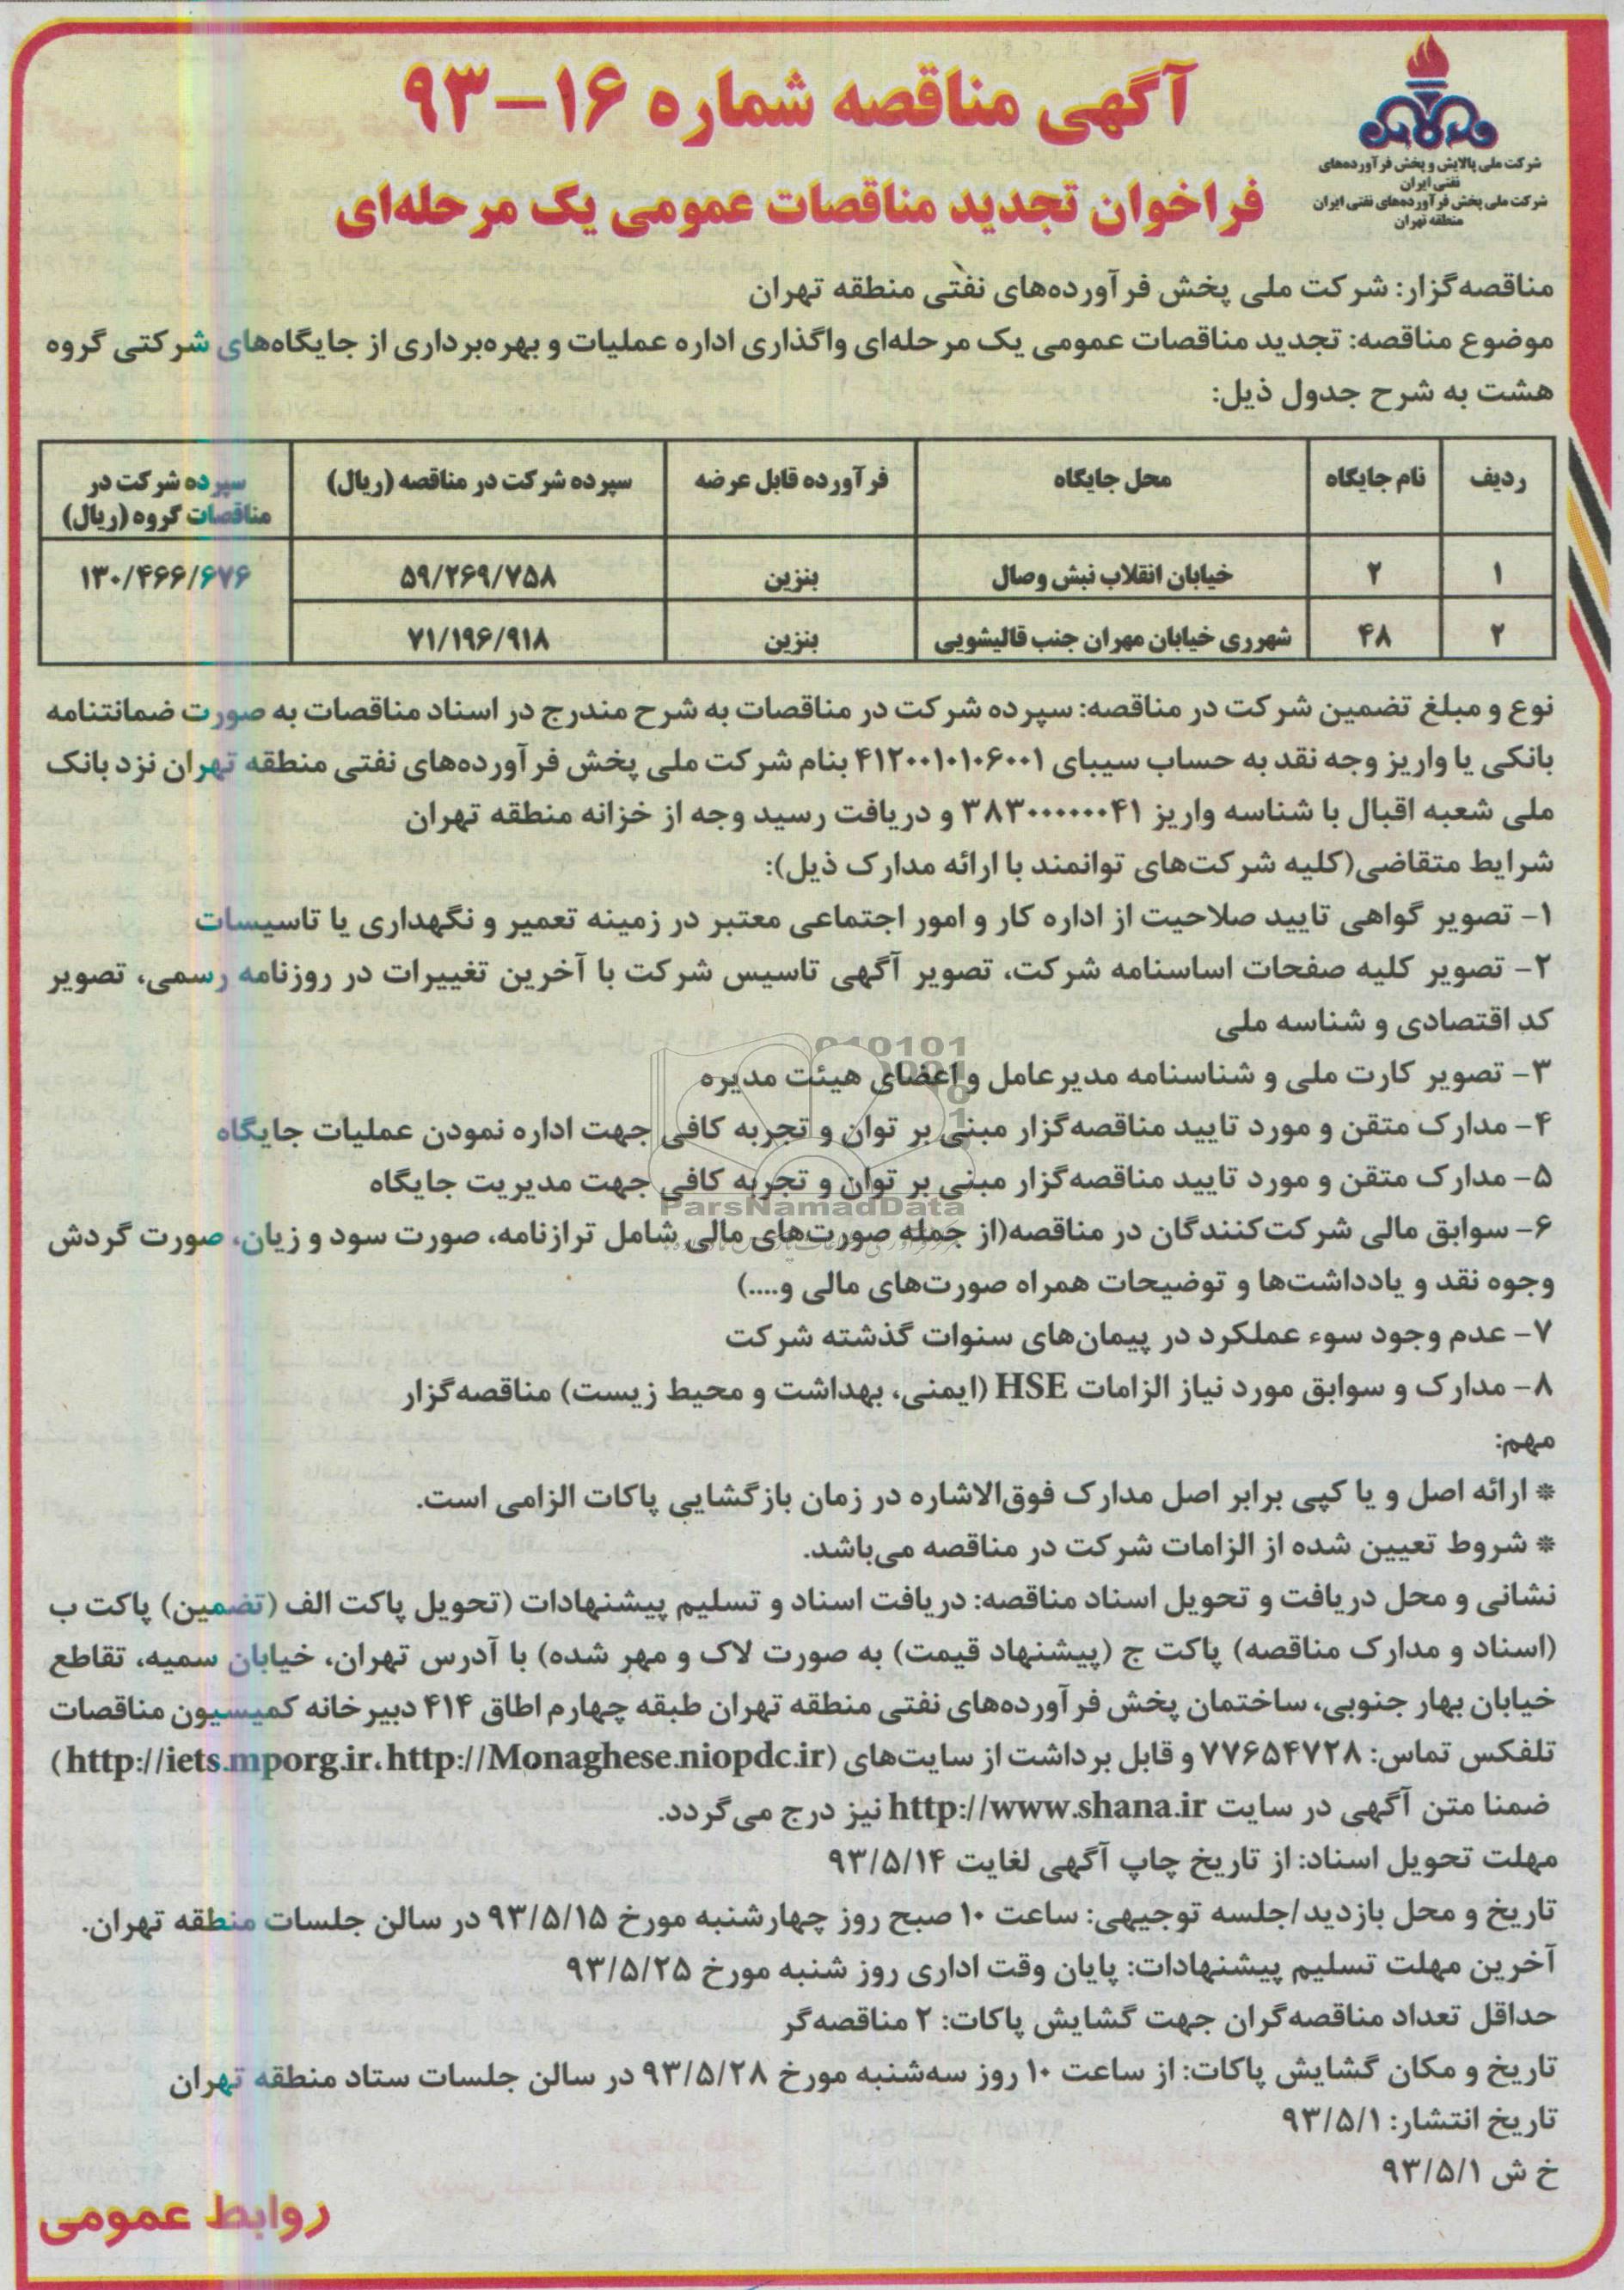 شرکت ملی پالایش و پخش فرآورده‌های
نفتی ایران
شرکت ملی پخش فرآورده‌های نفتی ایران
منطقه تهران
آگهی مناقصه شماره ۱۶-۹۳
فراخوان تجدید مناقصات عمومی یک مرحله‌ای
مناقصه‌گزار: شرکت ملی پخش فرآورده‌های نفتی منطقه تهران
موضوع مناقصه: تجدید مناقصات عمومی یک مرحله‌ای واگذاری اداره عملیات و بهره‌برداری از جایگاه‌های شرکتی گروه
هشت به شرح جدول ذیل:
ردیف نام جایگاه محل جایگاه فرآورده قابل عرضه سپرده شرکت در مناقصه (ریال) سپرده شرکت در
مناقصات گروه (ریال)
۱ ۲ خیابان انقلاب نبش وصال بنزین ۵۹/۲۶۹/۷۵۸ ۱۳۰/۴۶۶/۶۷۶
۲ ۴۸ شهرری خیابان مهران جنب قالیشویی بنزین ۷۱/۱۹۶/۹۱۸
نوع و مبلغ تضمین شرکت در مناقصه: سپرده شرکت در مناقصات به شرح مندرج در اسناد مناقصات به صورت ضمانتنامه
بانکی یا واریز وجه نقد به حساب سیبای ۴۱۲۰۰۱۰۱۰۶۰۰۱ بنام شرکت ملی پخش فرآورده‌های نفتی منطقه تهران نزد بانک
ملی شعبه اقبال با شناسه واریز ۳۸۳۰۰۰۰۰۰۰۴۱ و دریافت رسید وجه از خزانه منطقه تهران
شرایط متقاضی(کلیه شرکت‌های توانمند با ارائه مدارک ذیل):
۱- تصویر گواهی تایید صلاحیت از اداره کار و امور اجتماعی معتبر در زمینه تعمیر و نگهداری یا تاسیسات
۲- تصویر کلیه صفحات اساسنامه شرکت، تصویر آگهی تاسیس شرکت با آخرین تغییرات در روزنامه رسمی، تصویر
کد اقتصادی و شناسه ملی
۳- تصویر کارت ملی و شناسنامه مدیرعامل و اعضای هیئت مدیره
۴- مدارک متقن و مورد تایید مناقصه‌گزار مبنی بر توان و تجربه کافی جهت اداره نمودن عملیات جایگاه
۵- مدارک متقن و مورد تایید مناقصه‌گزار مبنی بر توان و تجربه کافی جهت مدیریت جایگاه
ParsNamadData
۶- سوابق مالی شرکت‌کنندگان در مناقصه(از جمله صورت‌های مالی شامل ترازنامه، صورت سود و زیان، صورت گردش
وجوه نقد و یادداشت‌ها و توضیحات همراه صورت‌های مالی و....)
۷- عدم وجود سوء عملکرد در پیمان‌های سنوات گذشته شرکت
۸- مدارک و سوابق مورد نیاز الزامات HSE (ایمنی، بهداشت و محیط زیست) مناقصه‌گزار
مهم:
* ارائه اصل و یا کپی برابر اصل مدارک فوق‌الاشاره در زمان بازگشایی پاکات الزامی است.
* شروط تعیین شده از الزامات شرکت در مناقصه می‌باشد.
نشانی و محل دریافت و تحویل اسناد مناقصه: دریافت اسناد و تسلیم پیشنهادات (تحویل پاکت الف (تضمین) پاکت ب
(اسناد و مدارک مناقصه) پاکت ج (پیشنهاد قیمت) به صورت لاک و مهر شده) با آدرس تهران، خیابان سمیه، تقاطع
خیابان بهار جنوبی، ساختمان پخش فرآورده‌های نفتی منطقه تهران طبقه چهارم اطاق ۴۱۴ دبیرخانه کمیسیون مناقصات
تلفکس تماس: ۷۷۶۵۴۷۲۸ و قابل برداشت از سایت‌های (http://iets.mporg.ir، http://Monaghese.niopdc.ir)
ضمنا متن آگهی در سایت http://www.shana.ir نیز درج می‌گردد.
مهلت تحویل اسناد: از تاریخ چاپ آگهی لغایت ۹۳/۵/۱۴
تاریخ و محل بازدید/جلسه توجیهی: ساعت ۱۰ صبح روز چهارشنبه مورخ ۹۳/۵/۱۵ در سالن جلسات منطقه تهران.
آخرین مهلت تسلیم پیشنهادات: پایان وقت اداری روز شنبه مورخ ۹۳/۵/۲۵
حداقل تعداد مناقصه‌گران جهت گشایش پاکات: ۲ مناقصه‌گر
تاریخ و مکان گشایش پاکات: از ساعت ۱۰ روز سه‌شنبه مورخ ۹۳/۵/۲۸ در سالن جلسات ستاد منطقه تهران
تاریخ انتشار: ۹۳/۵/۱
خ ش ۹۳/۵/۱
روابط عمومی